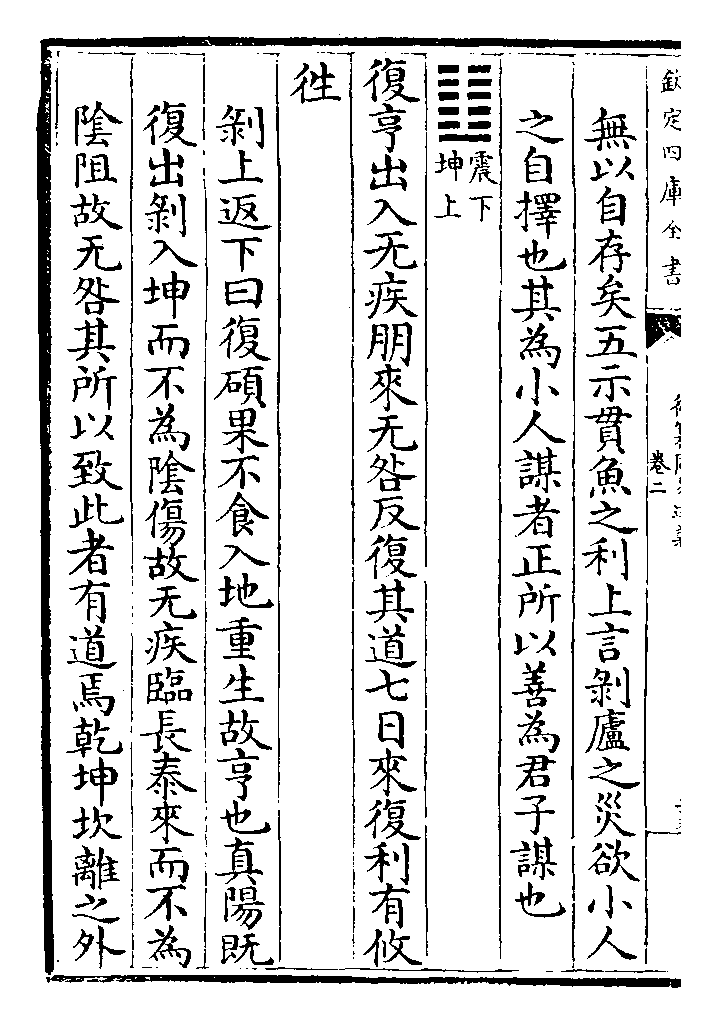 欽定四庫全書
卷二
無以自存矣五示貫魚之利上言剝廬之災欲小人
之自擇也其為小人謀者正所以善為君子謀也
震下
坤上
復亨出入无疾朋來无咎反復其道七日來復利有攸
徃
剝上返下曰復碩果不食入地重生故亨也真陽既
復出剝入坤而不為陰傷故无疾臨長泰來而不為
陰阻故无咎其所以致此者有道焉乾坤坎離之外